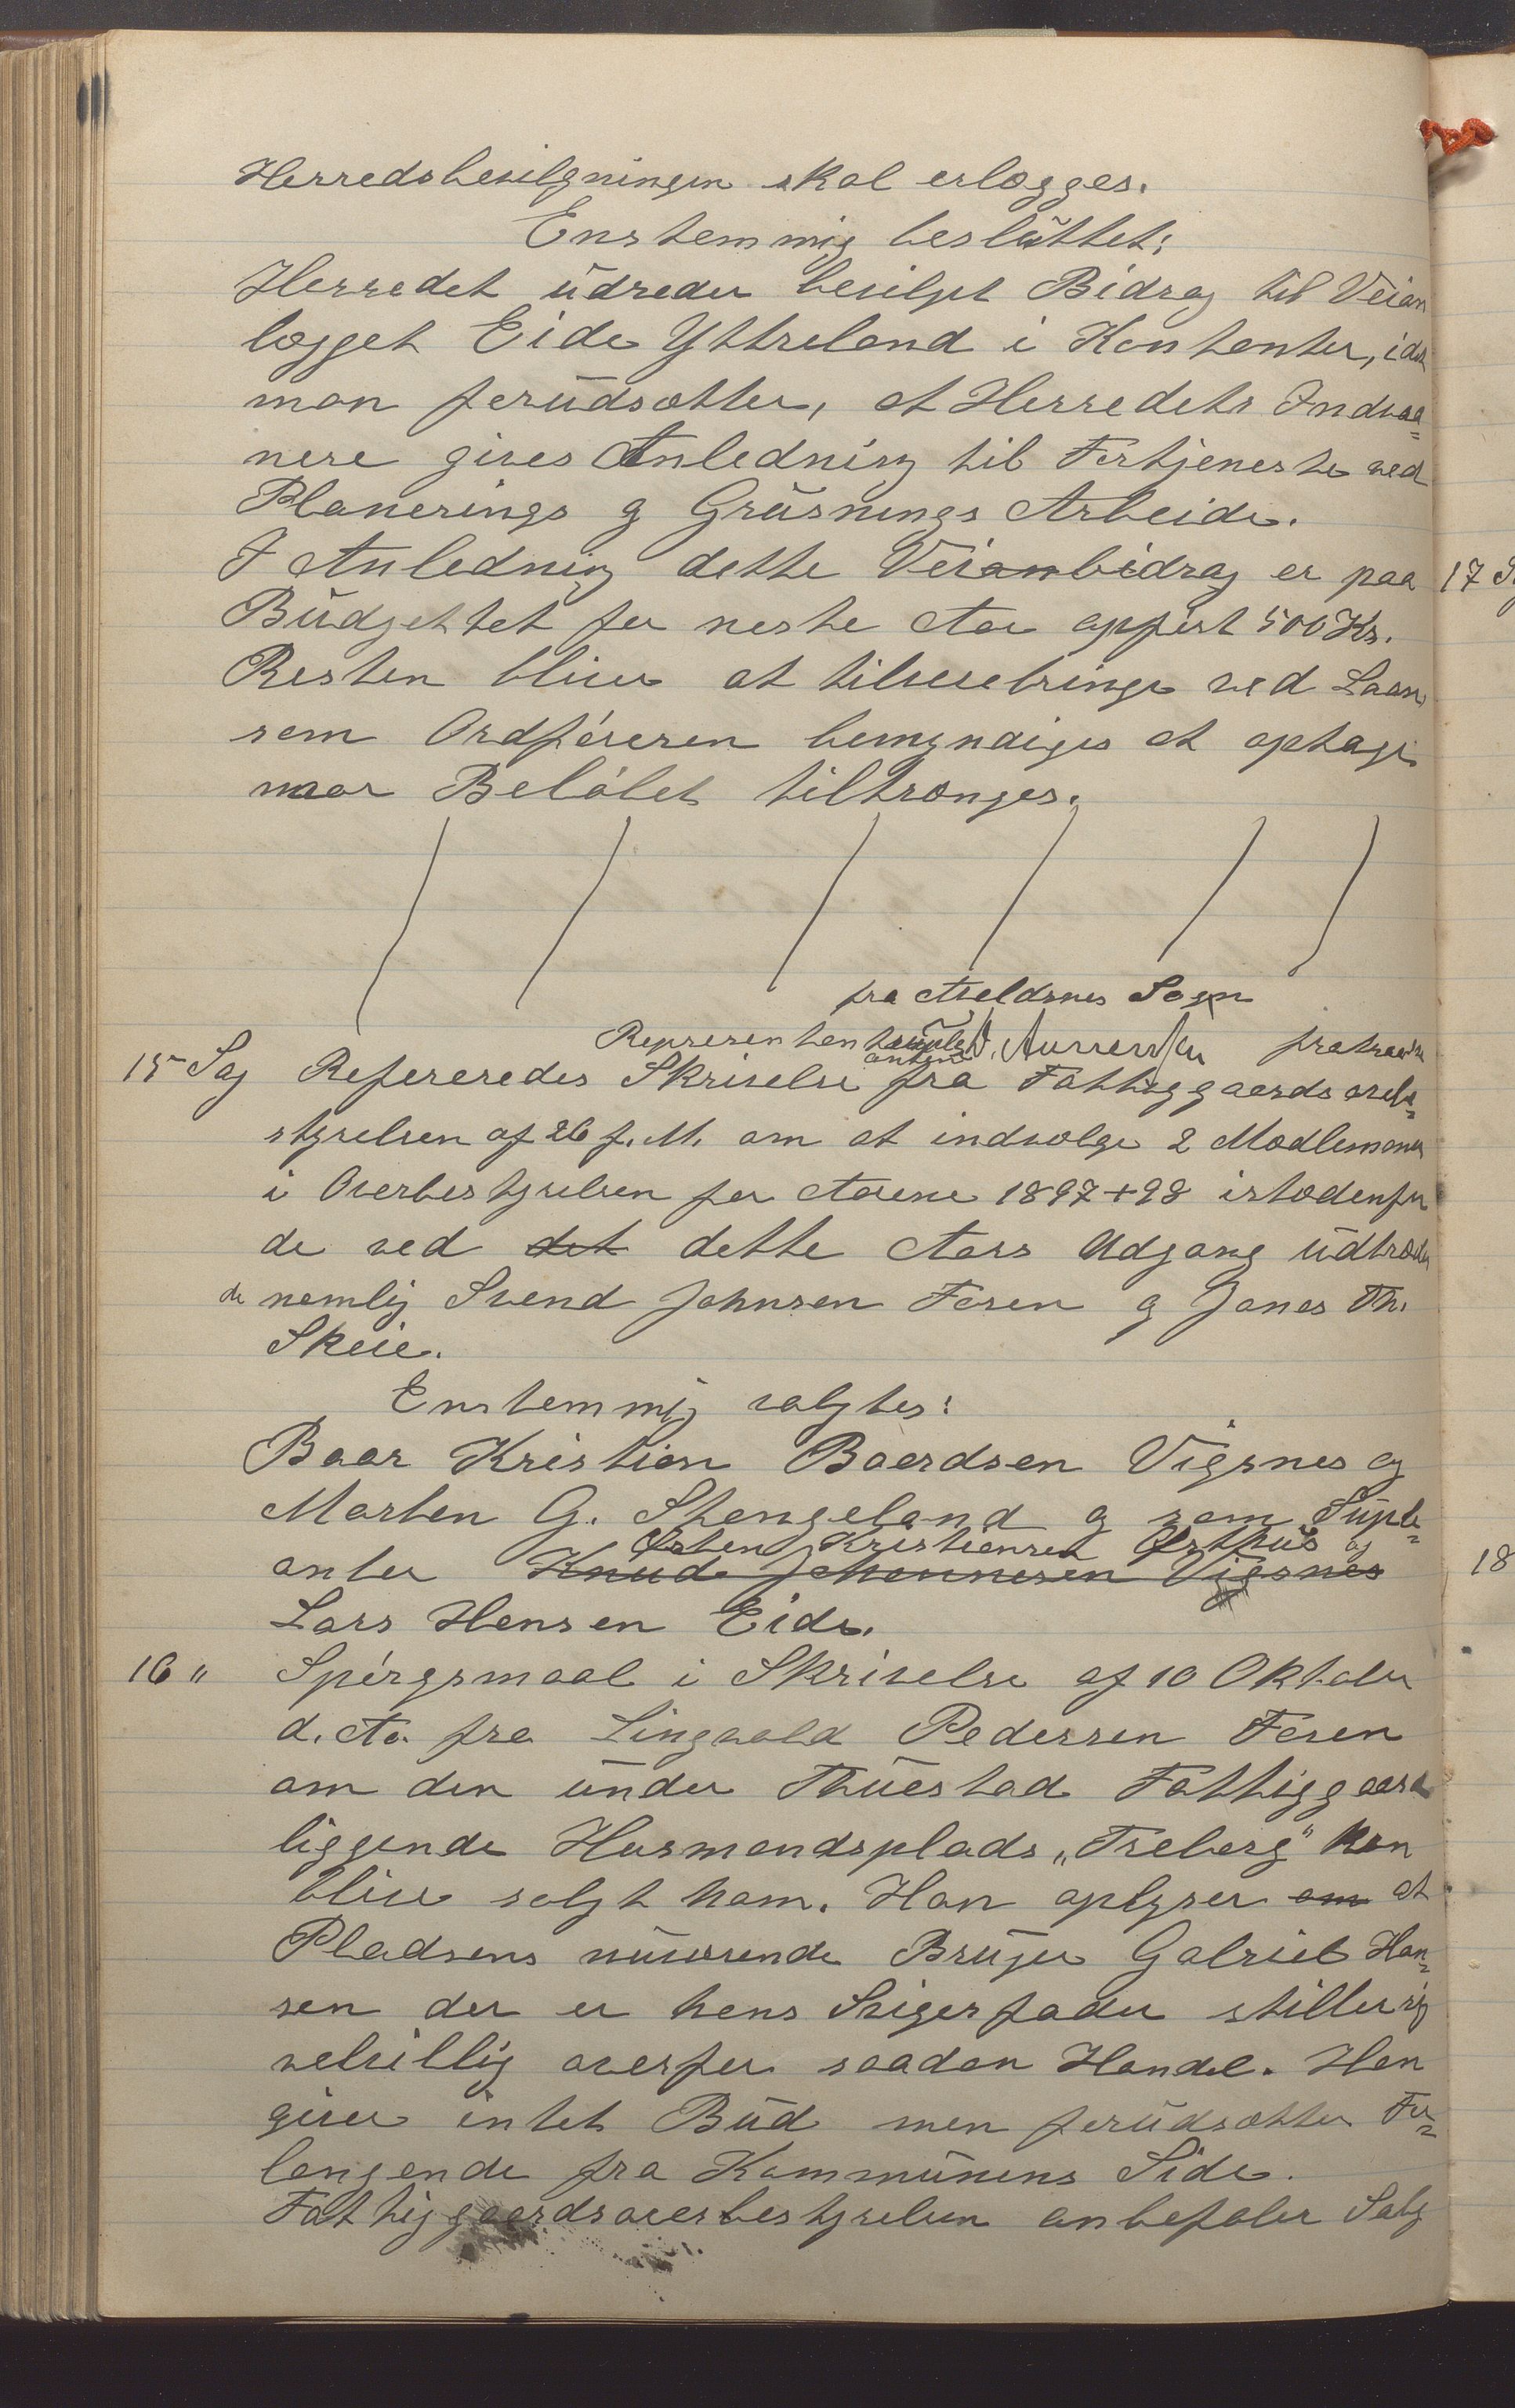 Herredsbevilgningen skal erlægges.
Enstemmig besluttet:
Herredet udreder bevilget Bidrag til Veian
lægget Eide Yttreland i Kontanter, idet
man forudsætter, at Herredets Indvaa=
nere gives Anledning til Fortjeneste ved
Planerings og Grusnings Arbeide.
I Anledning dette Veianbidrag er paa
Budgettet for neste Aar opført 500 Kr.
Resten bliver at tilveiebringe ved Laan,
som Ordføreren bemyndiges at optage
naar Beløbet tiltrænges.
fra Avaldsnes Sogn
Representant fratraadte
15 Sag Refereredes Skrivelse fra Fattiggaardsover=
styrelsen af 26 f. M. om at indvælge 2 Medlemmer
i Overbestyrelsen for Aarene 1897+98 istedenfor
de ved det dette Aars Udgang udtræden
de nemlig Svend Johnsen Fosen og Jonas Th.
Skeie.
Enstemmig valgtes:
Baar Kristian Baardsen Vigsnes og
Morten G. Stangeland og som Suple=
Østen Kristiansen Østhus og
anter Knud Johannesen Vigsnes
Lars Hansen Eide.
16 " Spørgsmaal i Skrivelse af 10 Oktober
d. Aa. fra Lingvald Pedersen Fosen
om den under Thuestad Fattiggaard
liggende Husmandsplads „Treberg" kan
blive solgt ham. Han oplyser om at
Pladsens nuværende Bruger Gabriel Han=
sen der er hans Svigerfader stiller sig
velvillig overfor saadan Handel. Han
giver intet Bud men forudsætter For=
langende fra Kommunens Side.
Fattiggaardsoverbestyrelsen anbefaler Salg
17 S
18